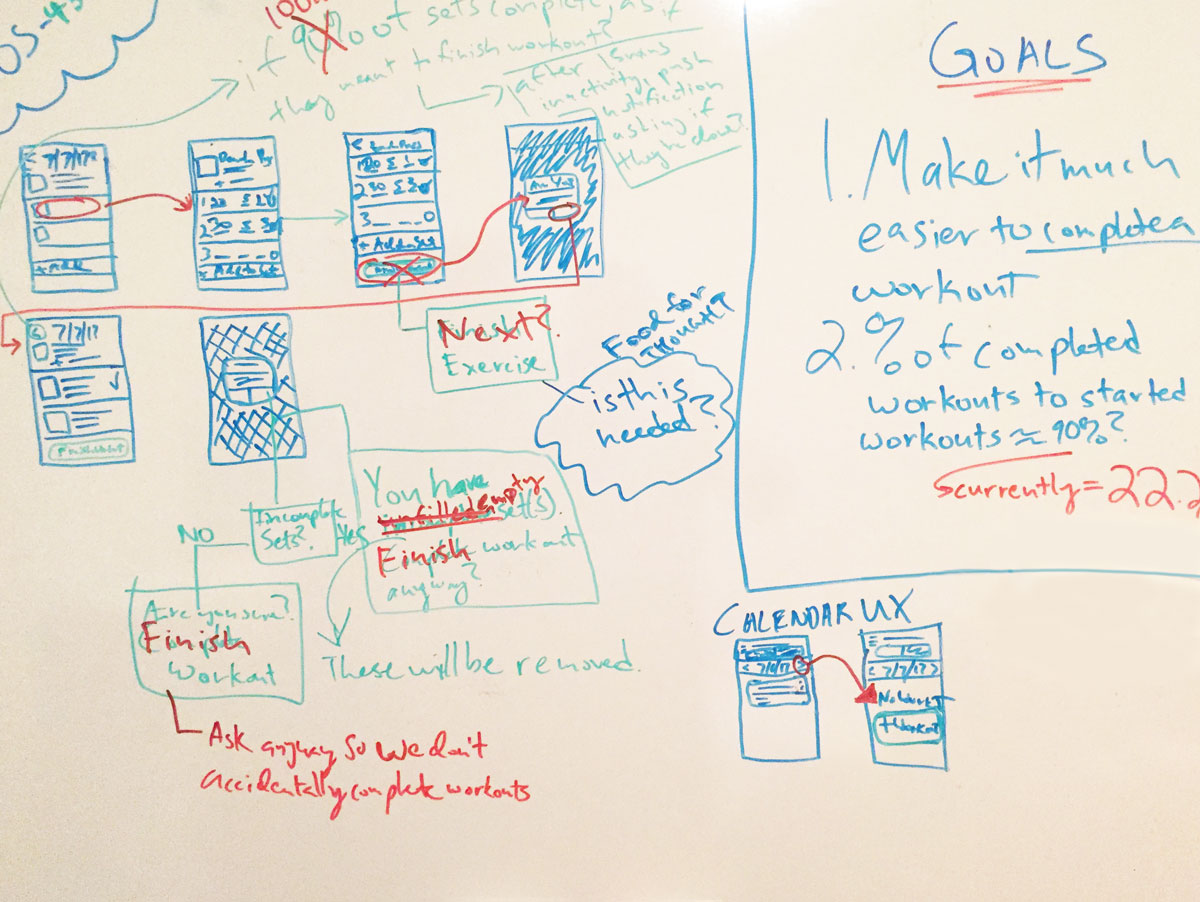 OS-43
100%
if 90% of sets complete, ask if
they meant to finish workout?
after 15 mins
inactivity, push
notification
asking if
they're done?
GOALS
1. Make it much
easier to complete a
workout
2. % of completed
workouts to started
workouts ≈ 90%?
currently = 22.2
< 7/7/17
+ Add
120 5 20
230 5 30
3 _ _ _ 0
+ Add a Set
230 5 30
3 _ _ _ 0
+ Add a Set
7/7/17
Next?
Exercise
Food for
THOUGHT
is this
needed?
Incomplete
sets?
NO
Yes
You have
unfilled empty
set(s).
Finish workout
anyway?
Are you sure?
Finish
Workout
These will be removed.
Ask anyway, so we don't
accidentally complete workouts
CALENDAR UX
< 7/7/17 >
No Workout
+ Workout